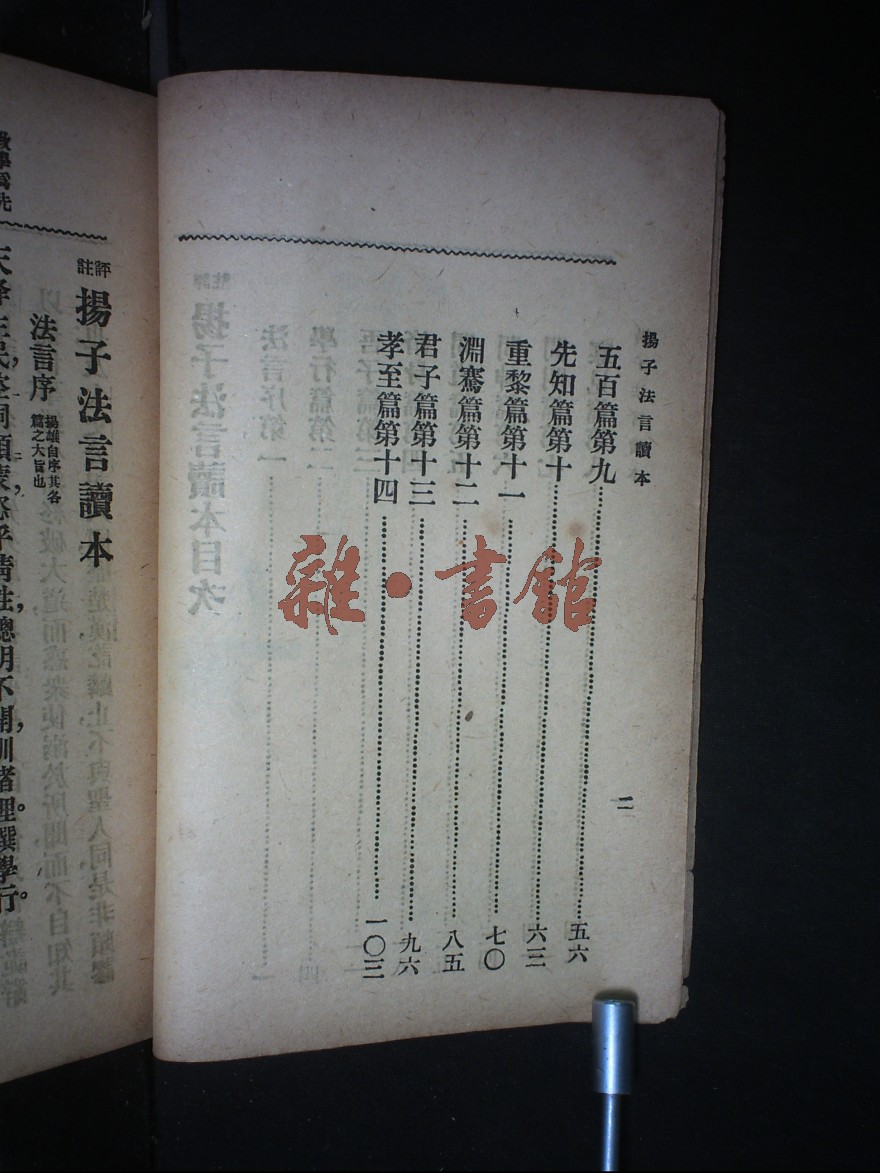 揚子法言讀本
二
五百篇第九……五六
先知篇第十……六三
重黎篇第十一……七〇
淵騫篇第十二……八五
君子篇第十三……九六
孝至篇第十四……一〇三
雜·書館
評註
揚子法言讀本
法言序
揚雄自序其各
篇之大旨也
天降生民，倥侗顓蒙，恣乎情性，聰明不開，訓諸理。譔學行。